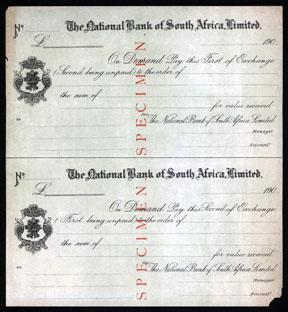 No
The National Bank of South Africa, Limited.
£ 190
On Demand Pay this First of Exchange
(Second being unpaid) to the order of
the sum of
for value received
For The National Bank of South Africa Limited
Manager
Account
SPECIMEN
No
The National Bank of South Africa, Limited.
£ 190
On Demand Pay this Second of Exchange
(First being unpaid) to the order of
the sum of
for value received
For The National Bank of South Africa Limited
Manager
Account
SPECIMEN